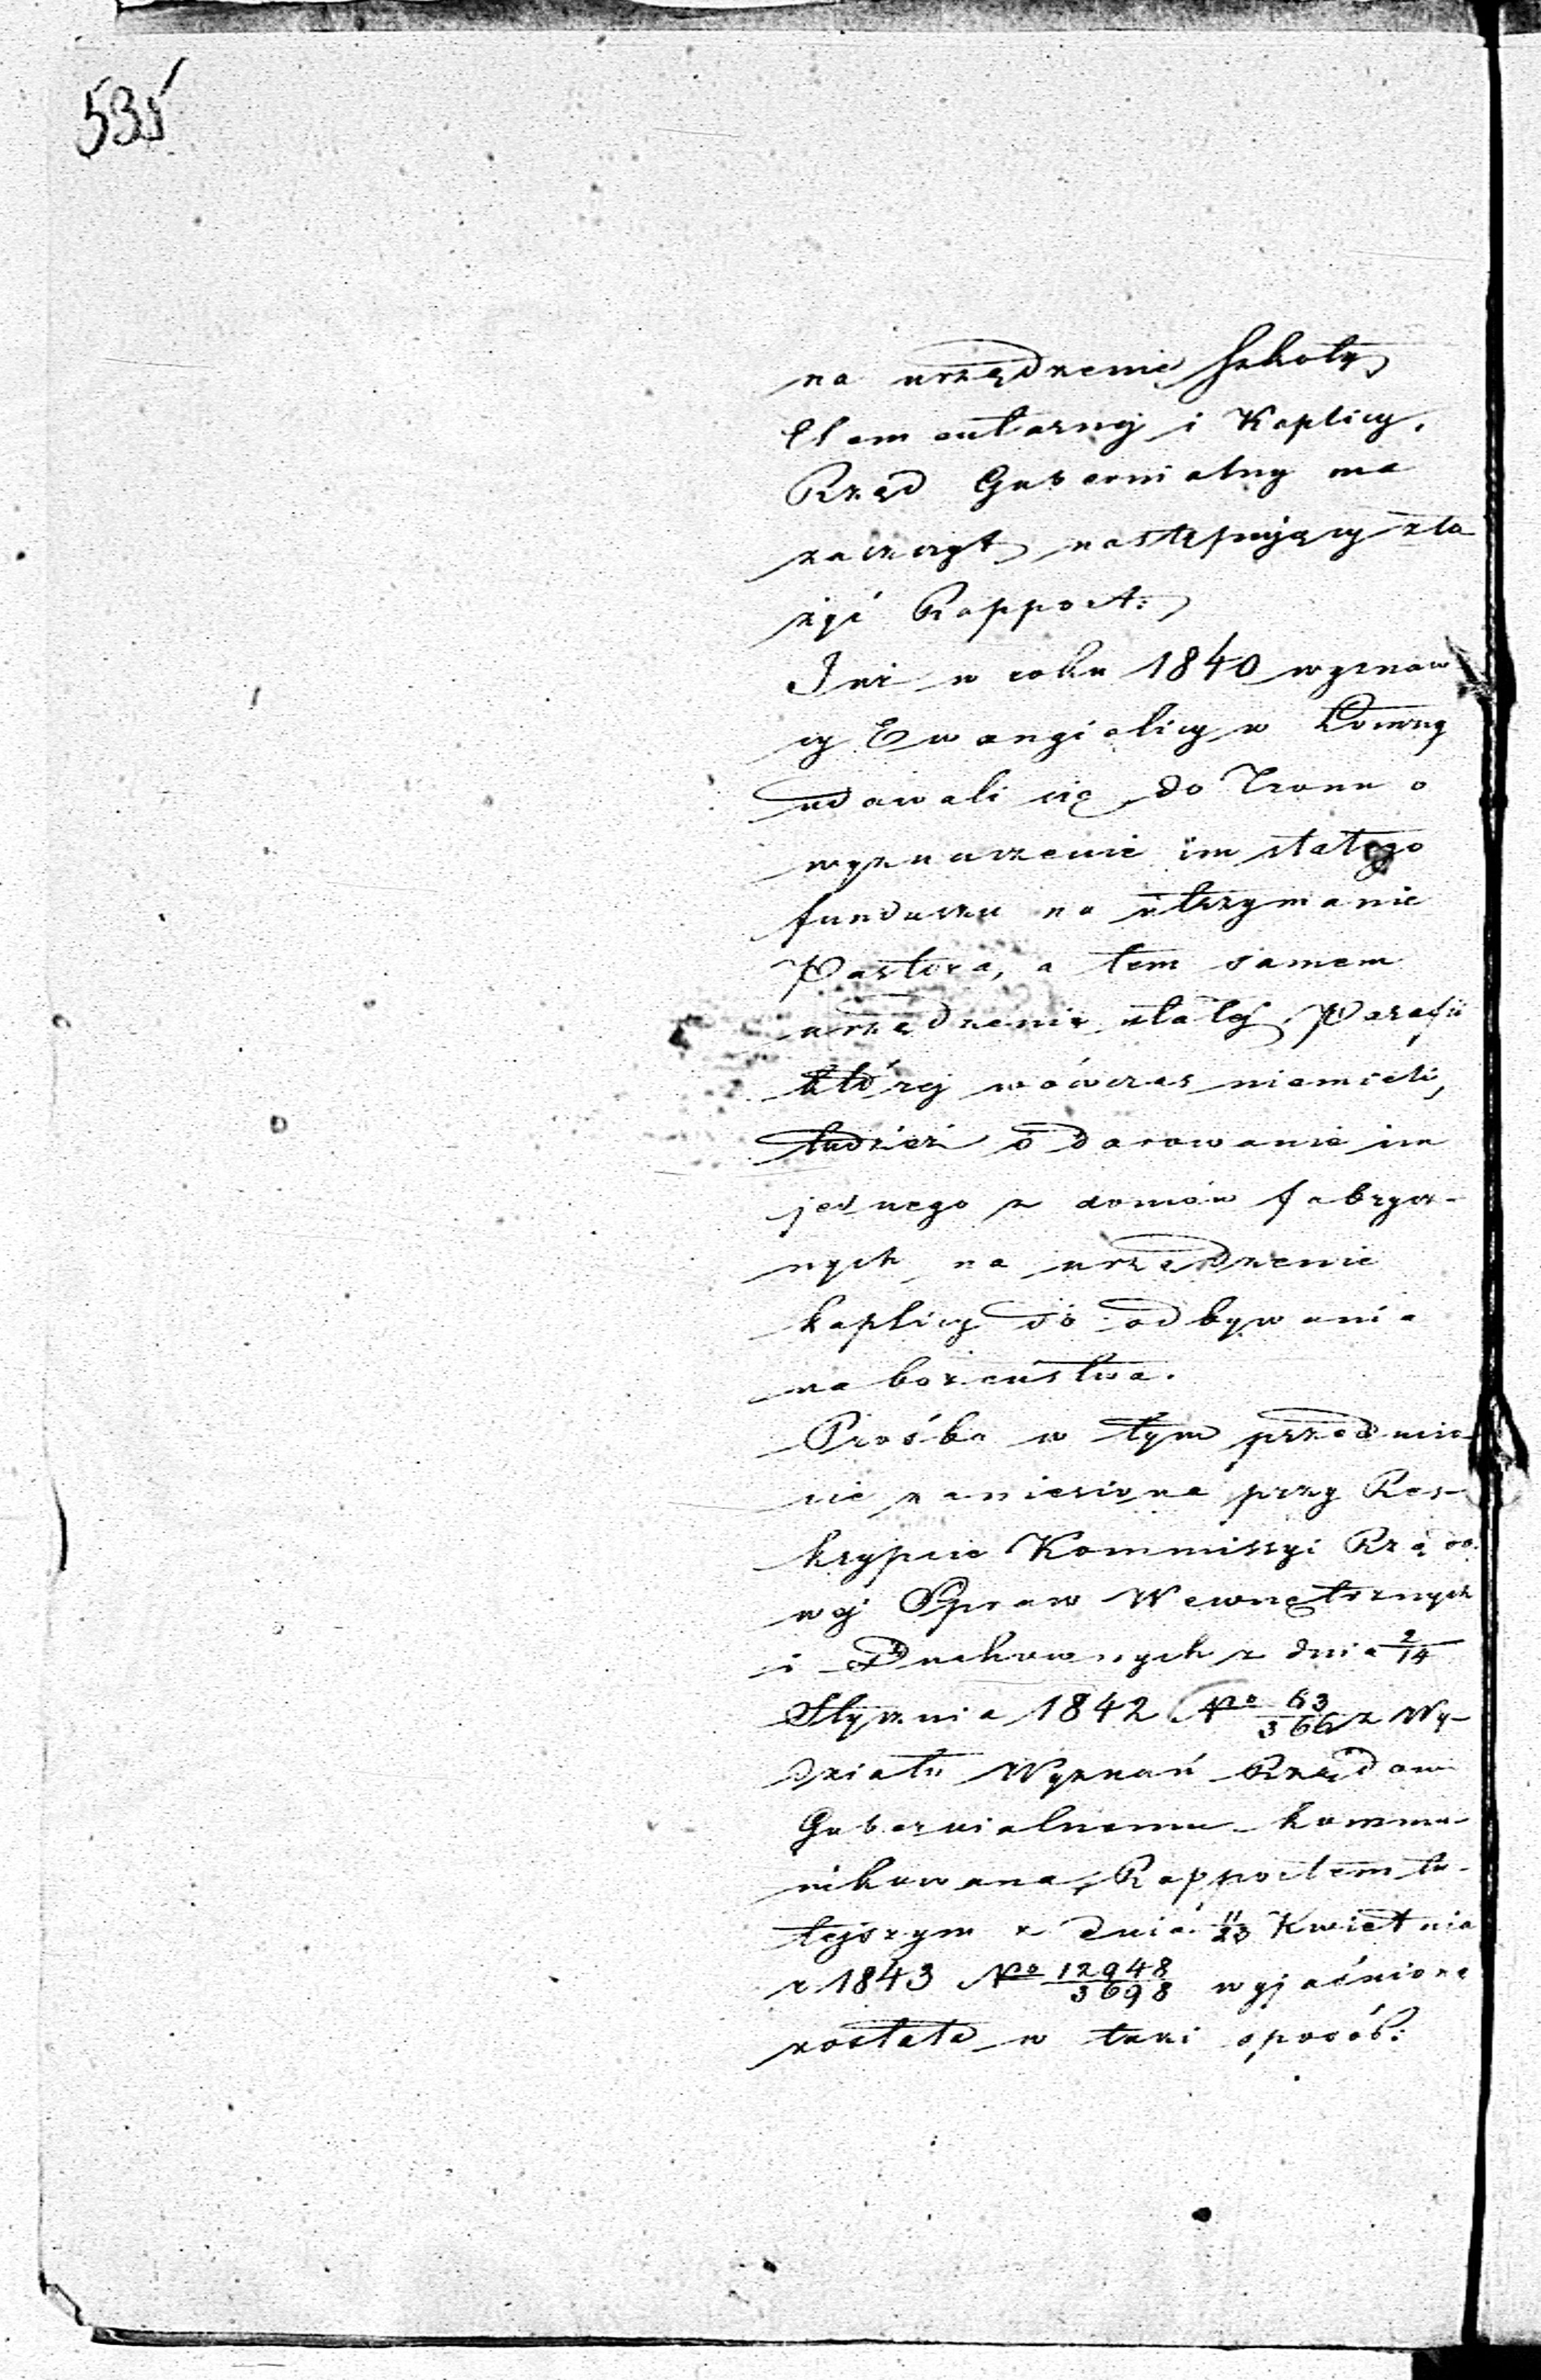 535
na urządzenie Szkoły
Elementarnej i Kaplicy.
Rząd Gubernialny ma
zaszczyt następujący zło
żyć Rapport:
Już w roku 1840 wyznaw
cy Ewangielicy w Łomży
udawali się do Tronu o
wyznaczenie im stałego
funduszu na utrzymanie
Pastora, a tem samem
urządzenie stałej Parafii
której wówczas niemieli,
tudzież o darowanie im
jednego z domów fabrycz-
nych na urządzenie
kaplicy do odbywania
nabożeństwa.
Prośba w tym przedmio-
cie zaniesiona przy Res-
krypcie Kommissyi Rządo
wej Spraw Wewnętrznych
i Duchownych z dnia 2/14
Stycznia 1842 No 63/366 z Wy-
działu Wyznań Rządowi
Gubernialnemu kommu-
nikowana, Rapportem tu-
tejszym z dnia 11/23 Kwietnia
r 1843 No 12948/3698 wyjaśnioną
została w taki sposób: